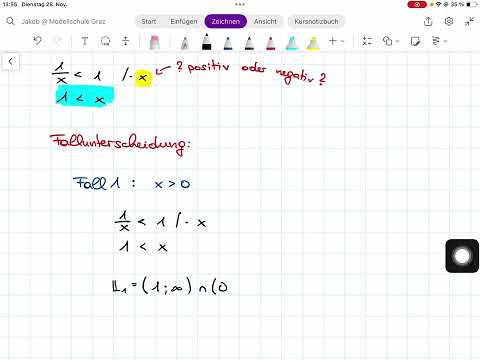 13:55 Dienstag 28. Nov. 35 %
Jakob @ Modellschule Graz
Start Einfügen Zeichnen Ansicht Kursnotizbuch
1/x < 1 /· x ? positiv oder negativ?
1 < x
Fallunterscheidung:
Fall 1 : x > 0
1/x < 1 /· x
1 < x
𝕃₁ = (1 ; ∞) ∩ (0